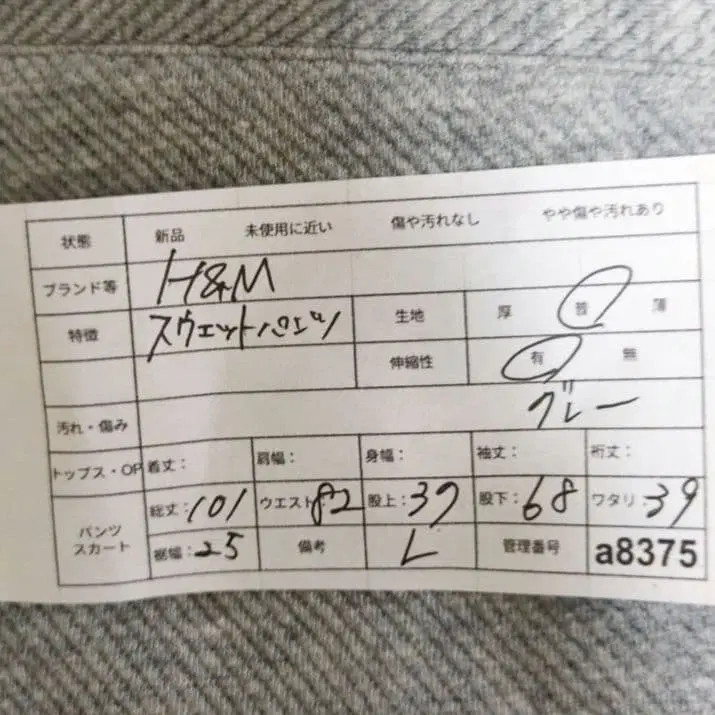 状態 新品 未使用に近い 傷や汚れなし やや傷や汚れあり
ブランド等 H&M
特徴 スウェットパンツ 生地 厚 普 薄
伸縮性 有 無
汚れ・傷み グレー
トップス・OP 着丈: 肩幅: 身幅: 袖丈: 裄丈:
パンツ スカート 総丈:101 ウエスト82 股上:37 股下:68 ワタリ:39
裾幅:25 備考 L 管理番号 a8375